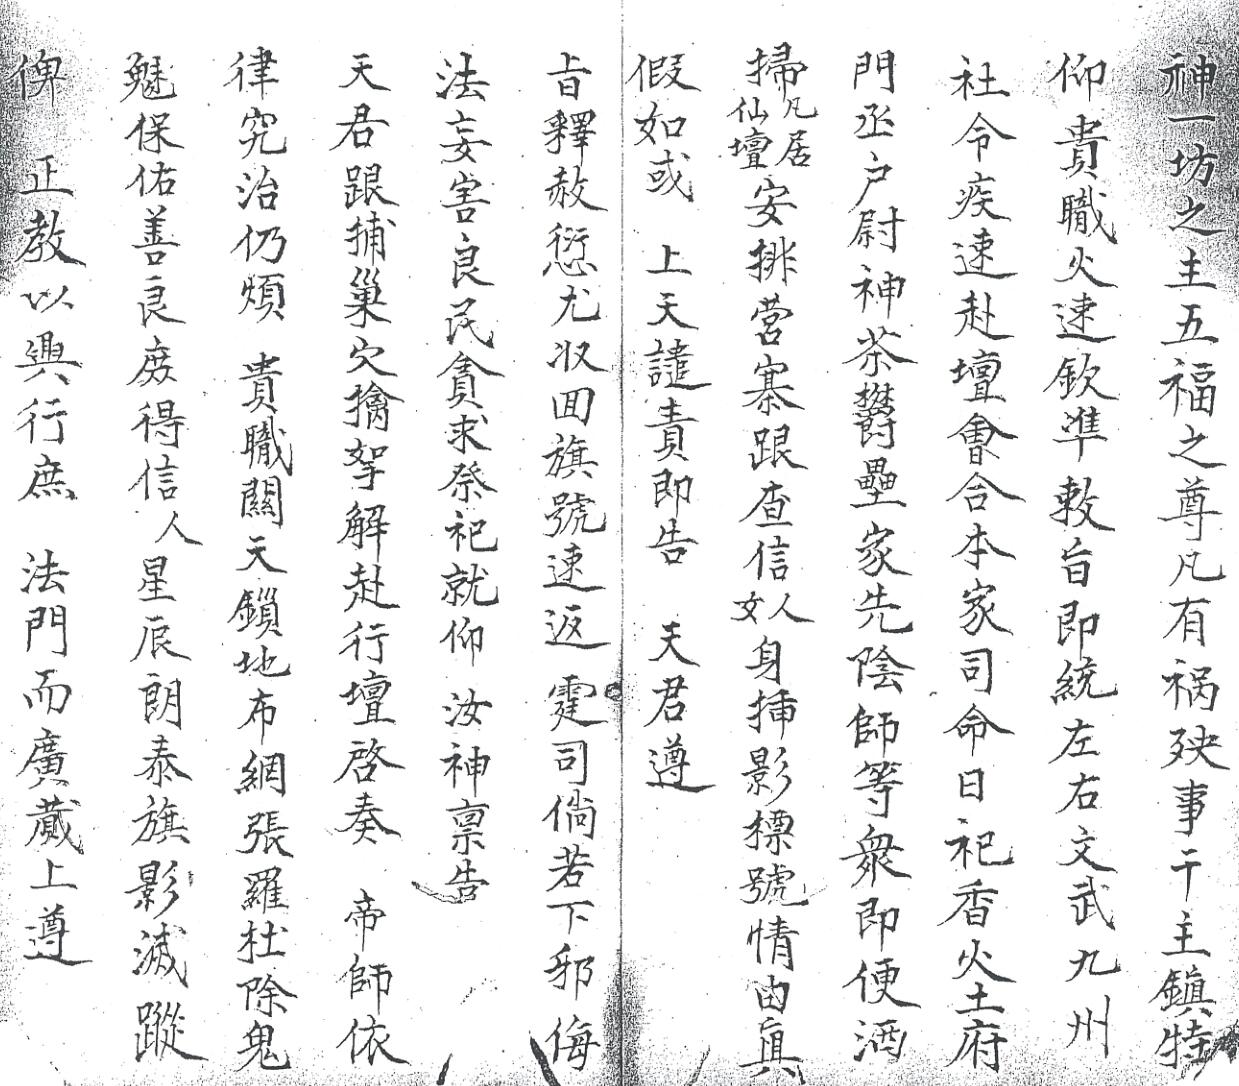 神一坊之主五福之尊凡有祸殃事干主鎮特
仰　貴職火速欽準敕旨即統左右文武九州
社令疾速赴壇會合本家司命日祀香火土府
門丞户尉神茶欝壘家先陰師等衆即便洒
掃凡居仙壇安排营寨跟查信人女身揷影標號情由真
假如或　上天譴責即告　天君遵
旨釋赦愆尤収回旗號速返　霆司倘若下邪侮
法妄害良民貪求祭祀就仰　汝神禀告
天君跟捕巢穴擒拏解赴行壇啓奏　帝師依
律究治仍煩　貴職關天鎖地布網張羅杜除鬼
魅保佑善良庶得信人星辰朗泰旗影滅蹤
俾　正教以興行庶　法門而廣蕆上遵